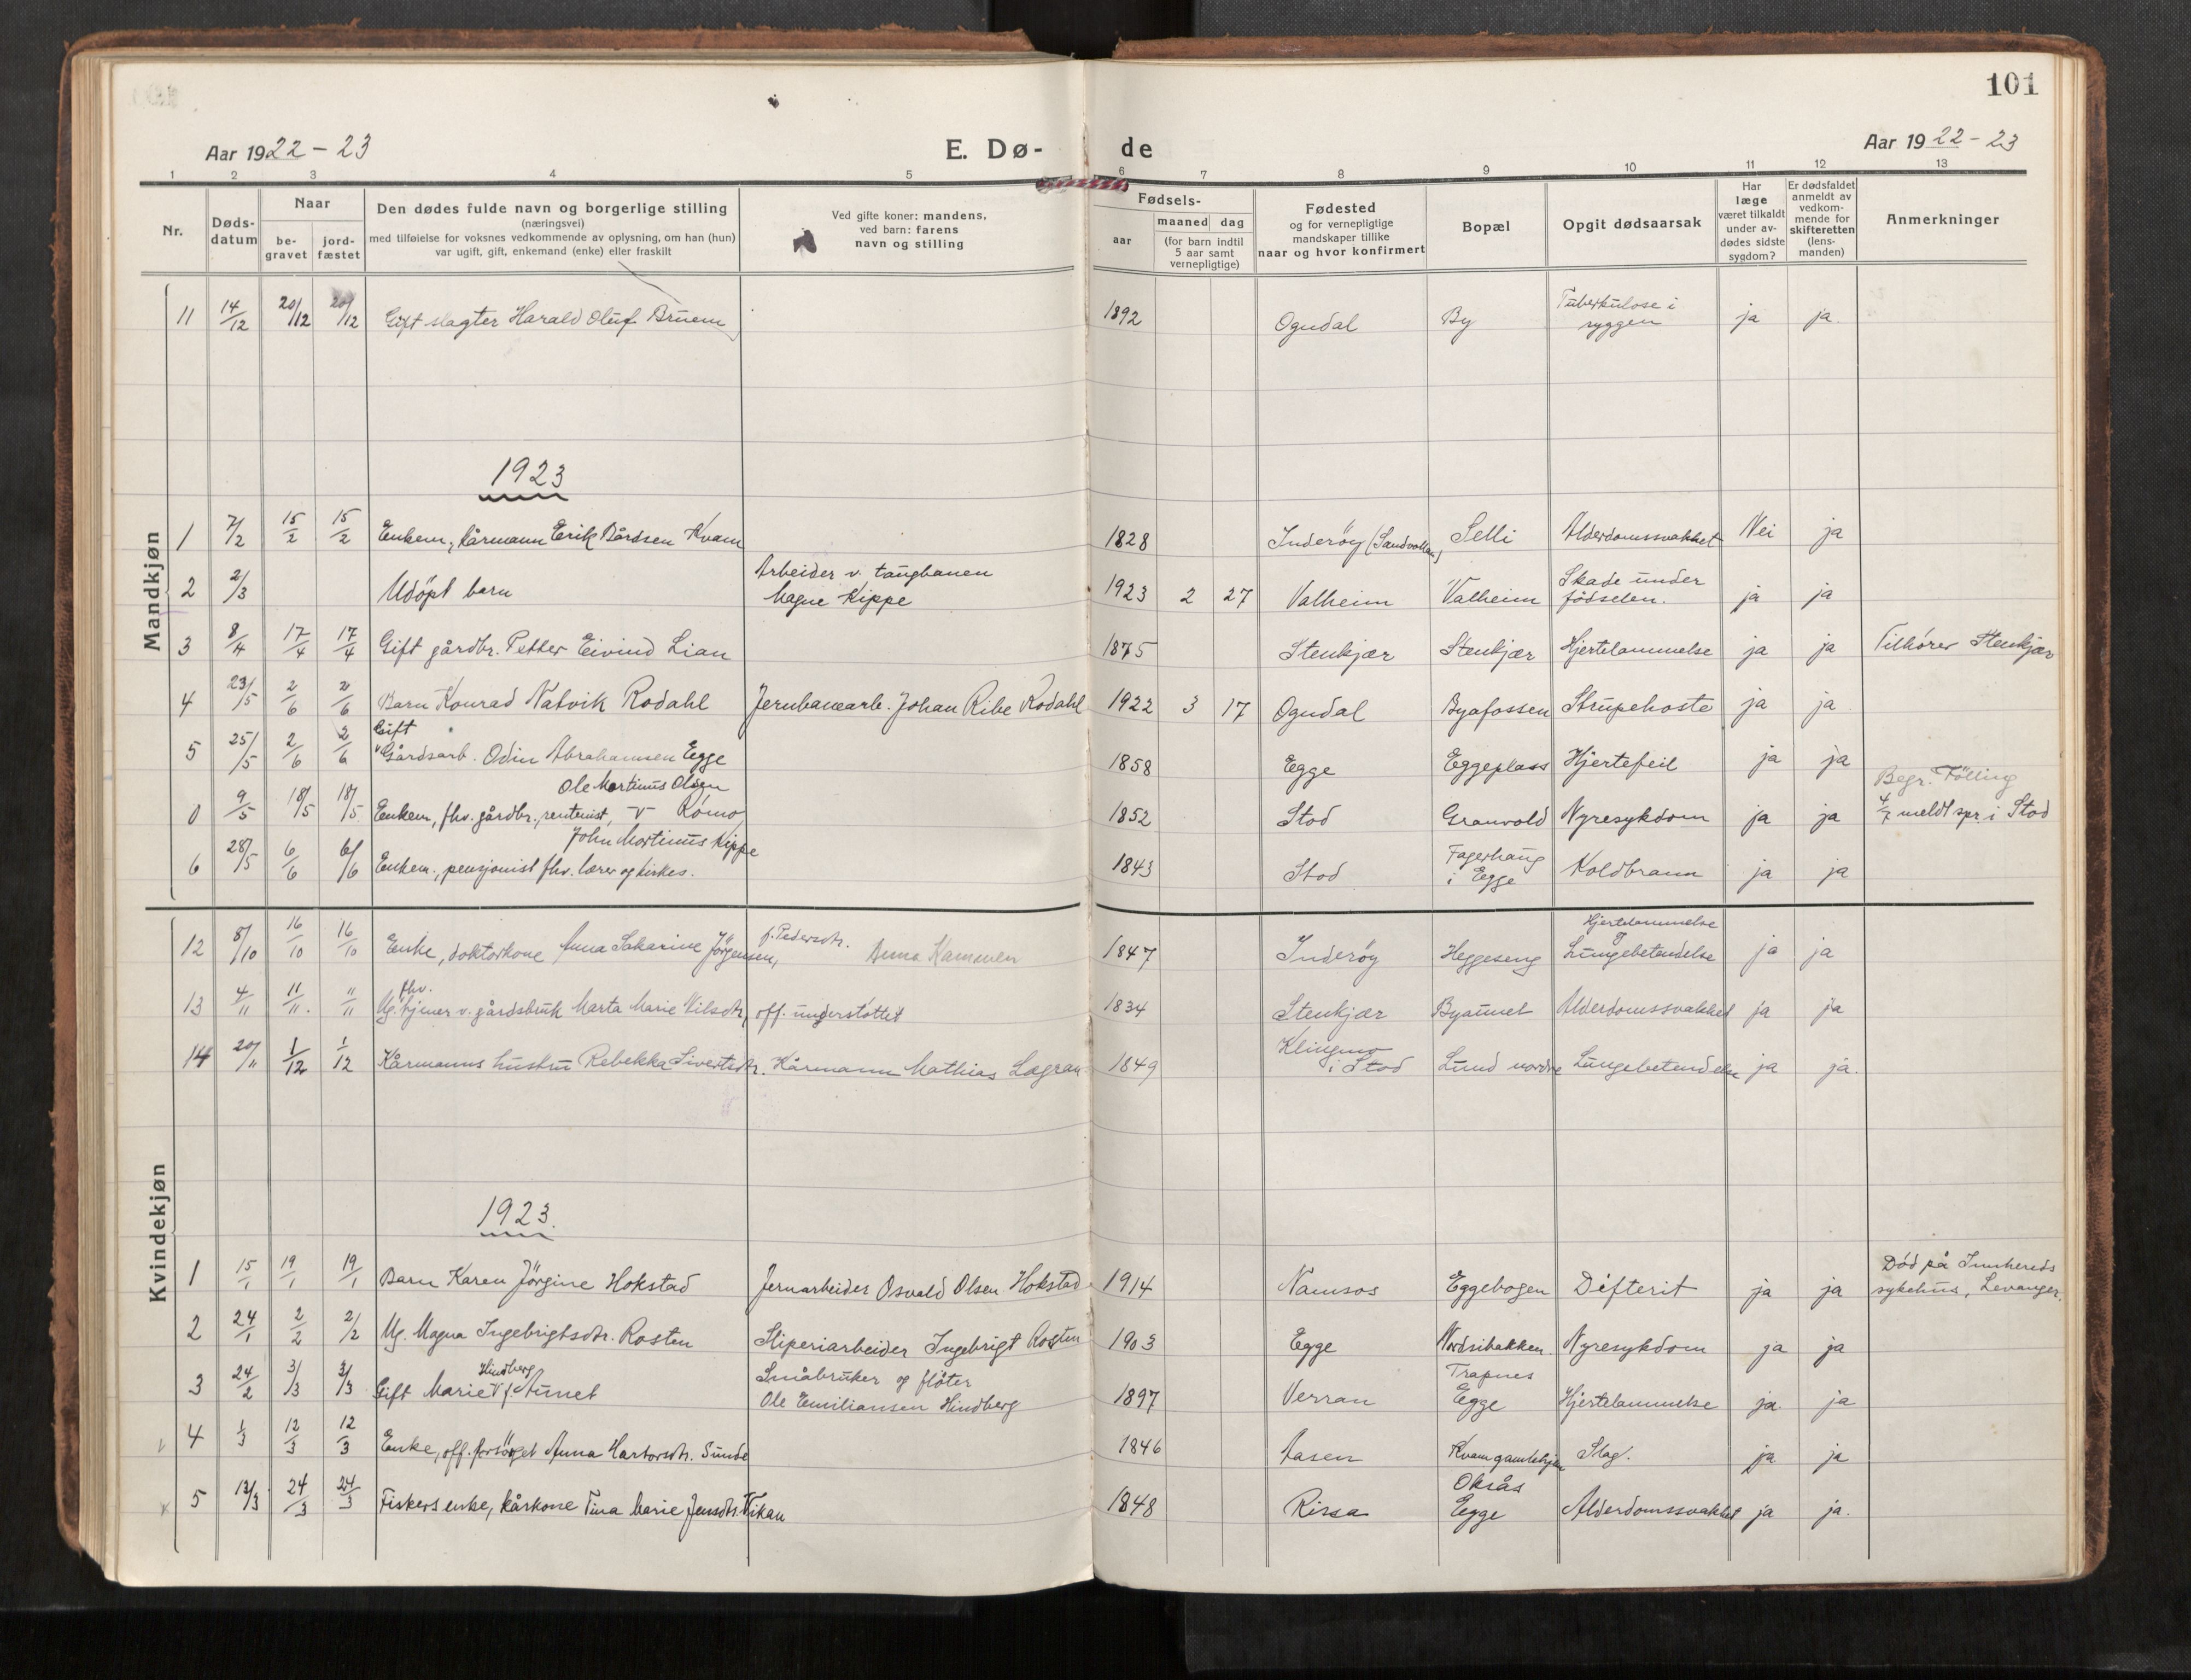 101
Aar 1922 - 23
E. Dø-
de
Aar 1922 - 23
1 2 3 4 5 6 7 8 9 10 11 12 13
Nr.
Døds-
datum
Naar
be-
gravet
jord-
fæstet
Den dødes fulde navn og borgerlige stilling
(næringsvei)
med tilføielse for voksnes vedkommende av oplysning, om han (hun)
var ugift, gift, enkemand (enke) eller fraskilt
Ved gifte koner: mandens,
ved barn: farens
navn og stilling
Fødsels-
aar
maaned dag
(for barn indtil
5 aar samt
vernepligtige)
Fødested
og for vernepligtige
mandskaper tillike
naar og hvor konfirmert
Bopæl
Opgit dødsaarsak
Har
læge
været tilkaldt
under av-
dødes sidste
sygdom?
Er dødsfaldet
anmeldt av
vedkom-
mende for
skifteretten
(lens-
manden)
Anmerkninger
Mandkjøn
11 14/12 20/12 20/12 Gift slagter Harald Oluf Bruem 1892 Ogndal By Tuberkulose i
ryggen ja ja.
1923
1 7/2 15/2 15/2 Enkem, kårmann Erik Bårdsen Kvam 1828 Inderøy (Sandvollan) Selli Alderdomssvakhet Nei ja
2 2/3 Udöpt barn Arbeider v. taugbanen
Magne Kippe 1923 2 27 Valheim Valheim Skade under
födselen. ja ja
3 8/4 17/4 17/4 Gift gårdbr. Petter Eivind Lian 1875 Stenkjær Stenkjær Hjertelammelse ja ja Tilhører Stenkjær
4 23/5 2/6 2/6 Barn Konrad Natvik Rodahl Jernbanearb. Johan Ribe Rodahl 1922 3 17 Ogndal Byafossen Strupehoste ja ja
Gift
5 25/5 2/6 2/6 Gårdsarb. Odin Abrahamsen Egge 1858 Egge Eggeplass Hjertefeil ja ja
Ole Martinus Olsen
0 9/5 18/5 18/5 Enkem, fhv. gårdbr., rentenist, v Römo 1852 Stod Granvold Nyresykdom ja ja Begr. Fölling
4/7 meldt spr. i Stod
John Martinus Kippe
6 28/5 6/6 6/6 Enkem., pensjonist fhv. lærer og kirkes. 1843 Stod Fagerhaug
i Egge Koldbrann ja ja
Kvindekjøn
12 8/10 16/10 16/10 Enke, doktorkone Anna Sakarine Jörgensen, f. Pedersdtr. Anna Kammen 1847 Inderøy Heggeseng Hjertelammelse
og
Lungebetendelse ja ja
fhv.
13 4/11 11/11. 11/11 Ug. tjener v. gårdsbruk Marta Marie Nilsdtr, off. understöttet 1834 Stenkjær Byaunet Alderdomssvakhet ja ja
14 20/11 1/12 1/12 Kårmanns hustru Rebekka Sivertsdtr. Kårmann Mathias Lagran 1849 Klingmo
i Stod Lund nordre Lungebetendelse ja ja.
1923.
1 15/1 19/1 19/1 Barn Karen Jörgine Hokstad Jernarbeider Osvald Olsen Hokstad 1914 Namsos Eggebogen Difterit ja ja Död på Innherreds
sykehus, Levanger.
2 24/1 2/2 2/2 Ug. Magna Ingebrigtsdtr. Rosten Sliperiarbeider Ingebrigt Rosten 1903 Egge Nordsibakken Nyresykdom ja ja
Hindberg
3 24/2 3/3 3/3 Gift Marie f. Aunet Småbruker og flöter
Ole Emiliansen Hindberg 1897 Verran Trapnes
Egge Hjertelammelse ja. ja
4 1/3 12/3 12/3 Enke, off. forsörget Anna Hartorsdtr. Sunde 1846 Aasen Kvam gamlehjem Slag. ja ja
5 13/3 24/3 24/3 Fiskers enke, kårkone Tina Marie Jensdtr. Vikan 1848 Rissa Oksås
Egge Alderdomssvakhet ja ja.